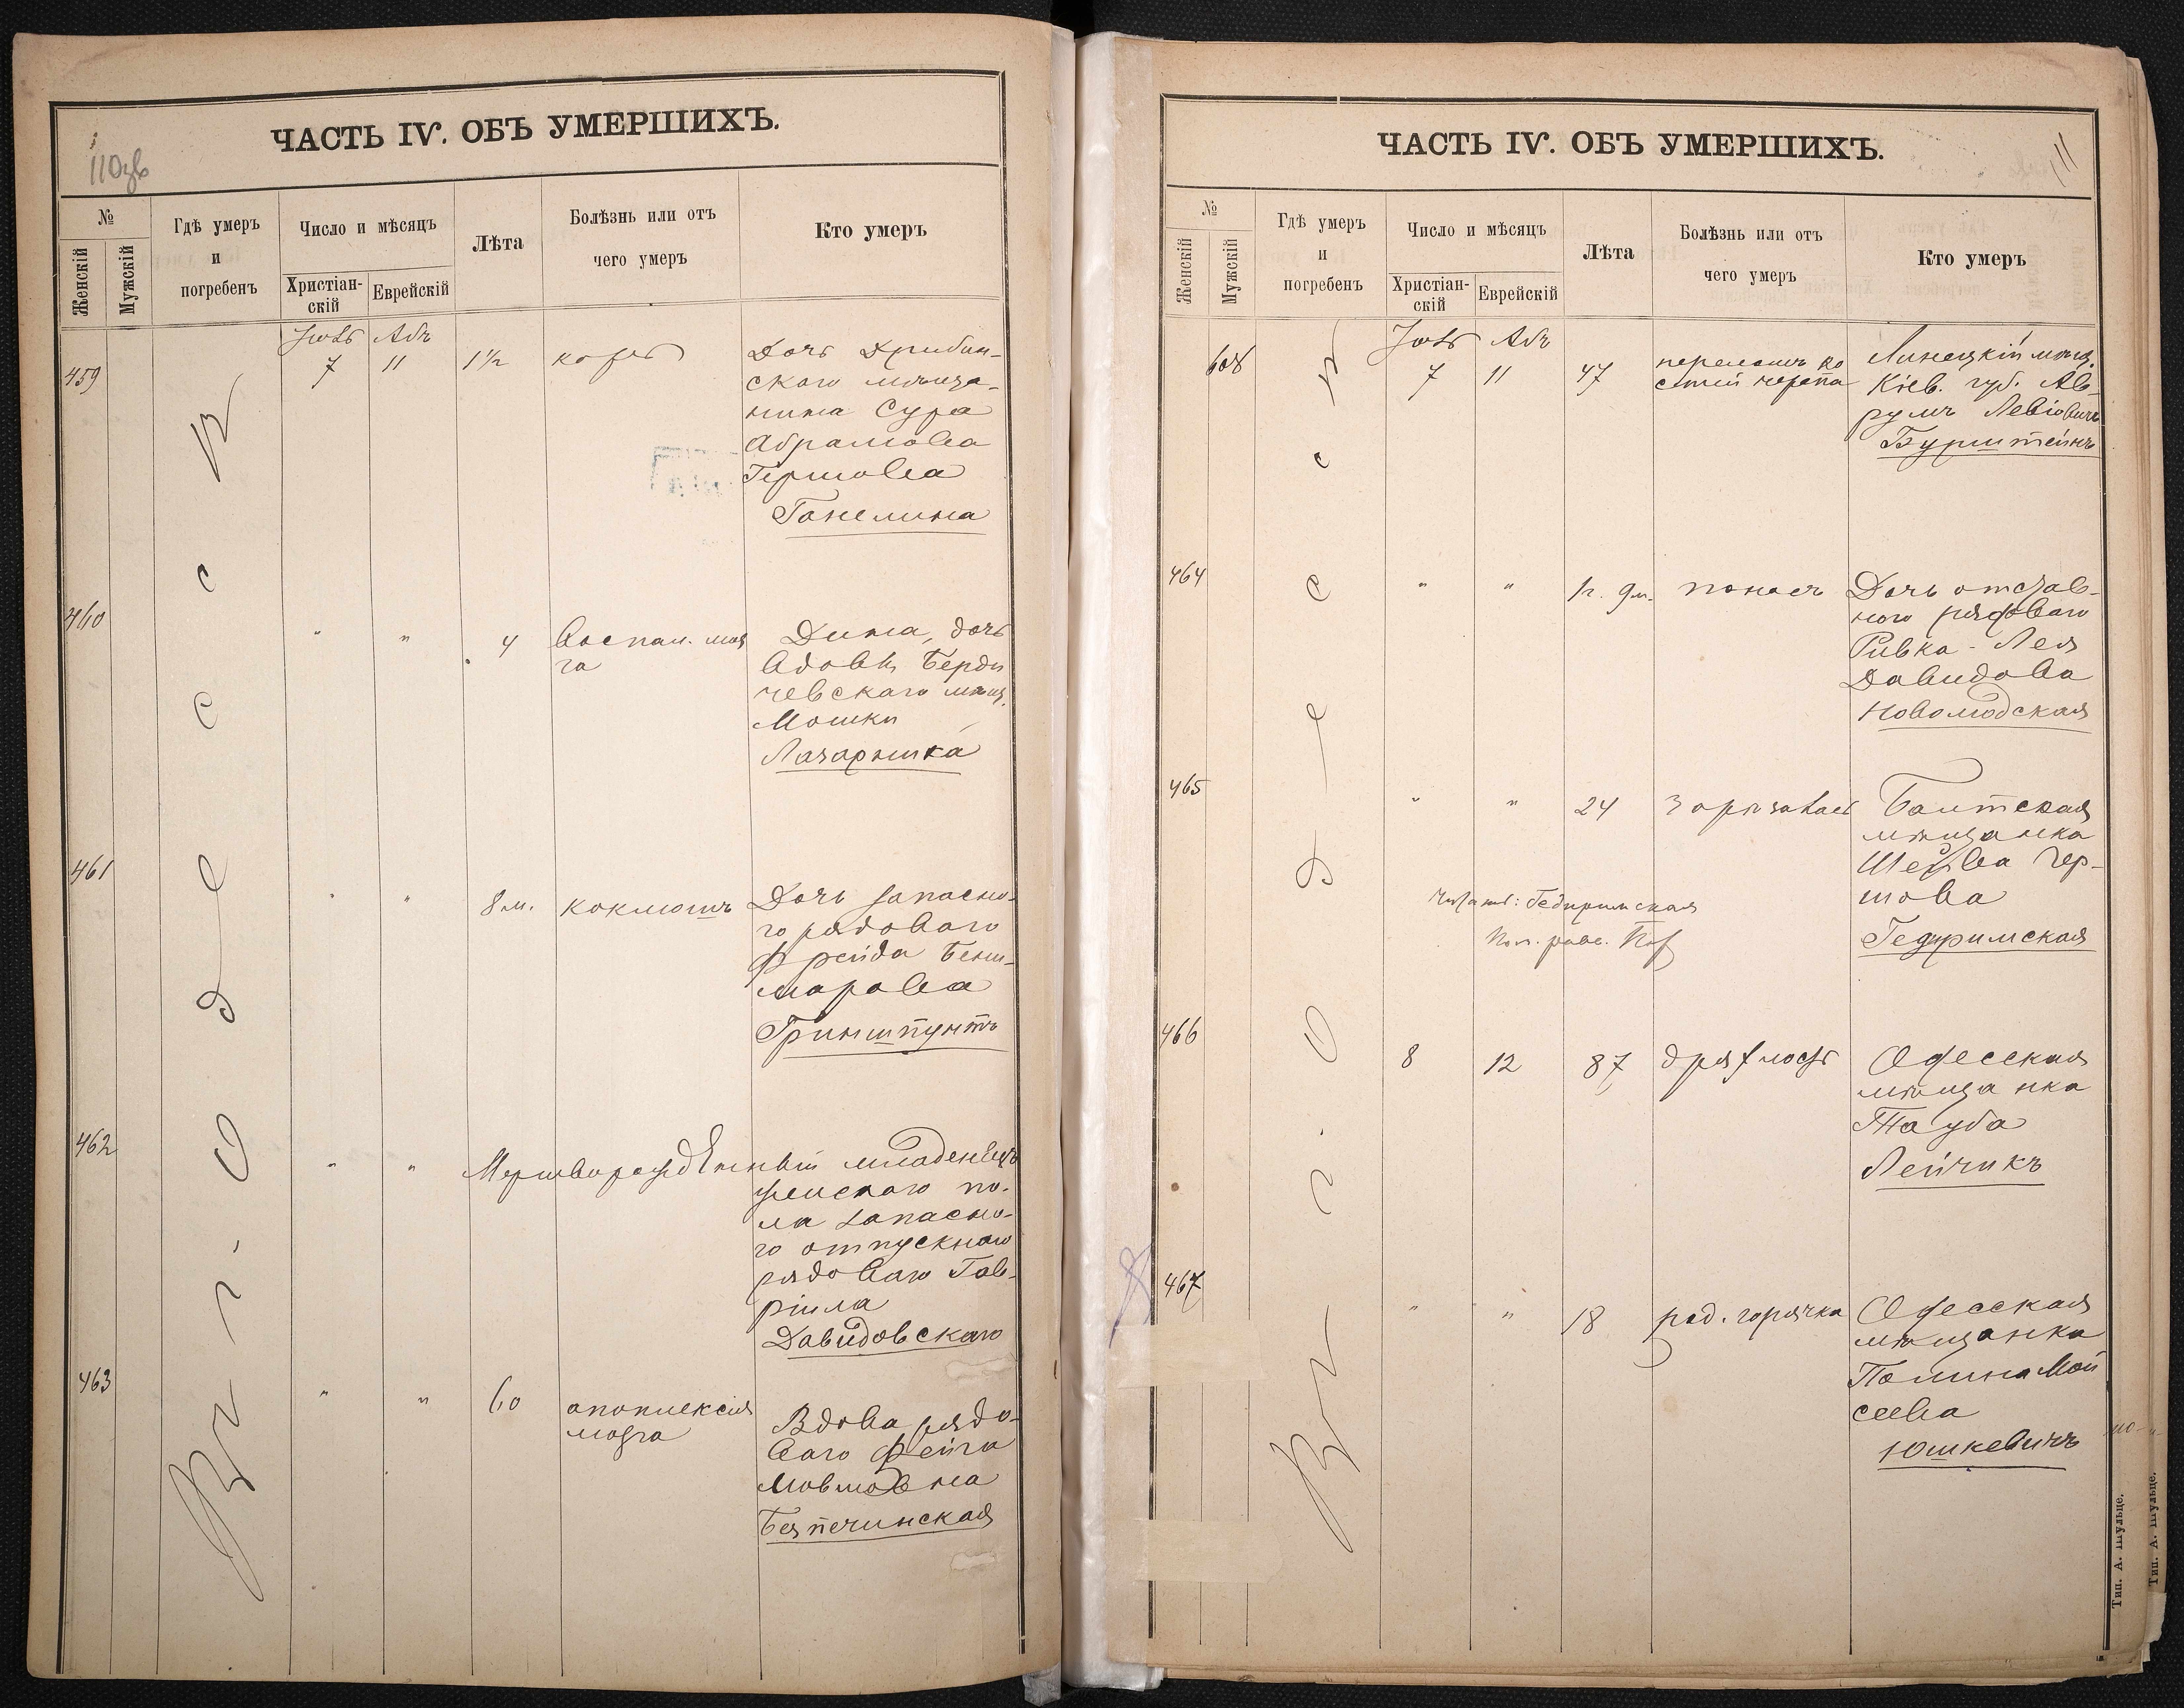 110зв
ЧАСТЬ IV. ОБЪ УМЕРШИХЪ.
№
Женскій
Мужскій
Гдѣ умеръ
и
погребенъ
Число и мѣсяцъ
Христіан-
скій
Еврейскій
Лѣта
Болѣзнь или отъ
чего умеръ
Кто умеръ
Въ г. Одессѣ
Іюль Абъ
459 7 11 1½ корь
Дочь Дрибин-
скаго мѣща-
нина Сура
Абрамова
Гершова
Ганелина
460 " " 4 воспал. моз
га
Дина, дочь
вдовы Берди
чевскаго мѣщ.
Мошки
Лазарника
461 " " 8 м. коклюшъ
Дочь запасно-
го рядоваго
Фрейда Бени-
марова
Гринштунтъ
462 " " Мертворожденный младенецъ
женскаго по-
ла запасно-
го отпускнаго
рядоваго Гав-
ріила
Давидовскаго
463 " " 60 апоплексія
мозга
Вдова рядо-
ваго Фейга
Мовшовна
Безпечинская
111
ЧАСТЬ IV. ОБЪ УМЕРШИХЪ.
№
Женскій
Мужскій
Гдѣ умеръ
и
погребенъ
Число и мѣсяцъ
Христіан-
скій
Еврейскій
Лѣта
Болѣзнь или отъ
чего умеръ
Кто умеръ
Въ г. Одессѣ
Іюль Абъ
608 7 11 47 переломъ ко
стей черепа
Линецкій мѣщ.
Кіев. губ. Ав-
румъ Левіовичъ
Бурштейнъ
464 " " 1 г. 9 м. поносъ
Дочь отстав-
ного рядоваго
Ривка-Лея
Давидова
Новомодская
465 " " 24 зарѣзалась
Балтская
мѣщанка
Шейва Гер-
шова
Гедримская
Читать: Гедиримская
466 8 12 87 дряхлость
Одесская
мѣщанка
Тауба
Лейчикъ
467 " " 18 род. горячка
Одесская
мѣщанка
Полина Мой
сеева
Юшкевичъ
Тип. А. Шульце.
Тип. А. Шульце.